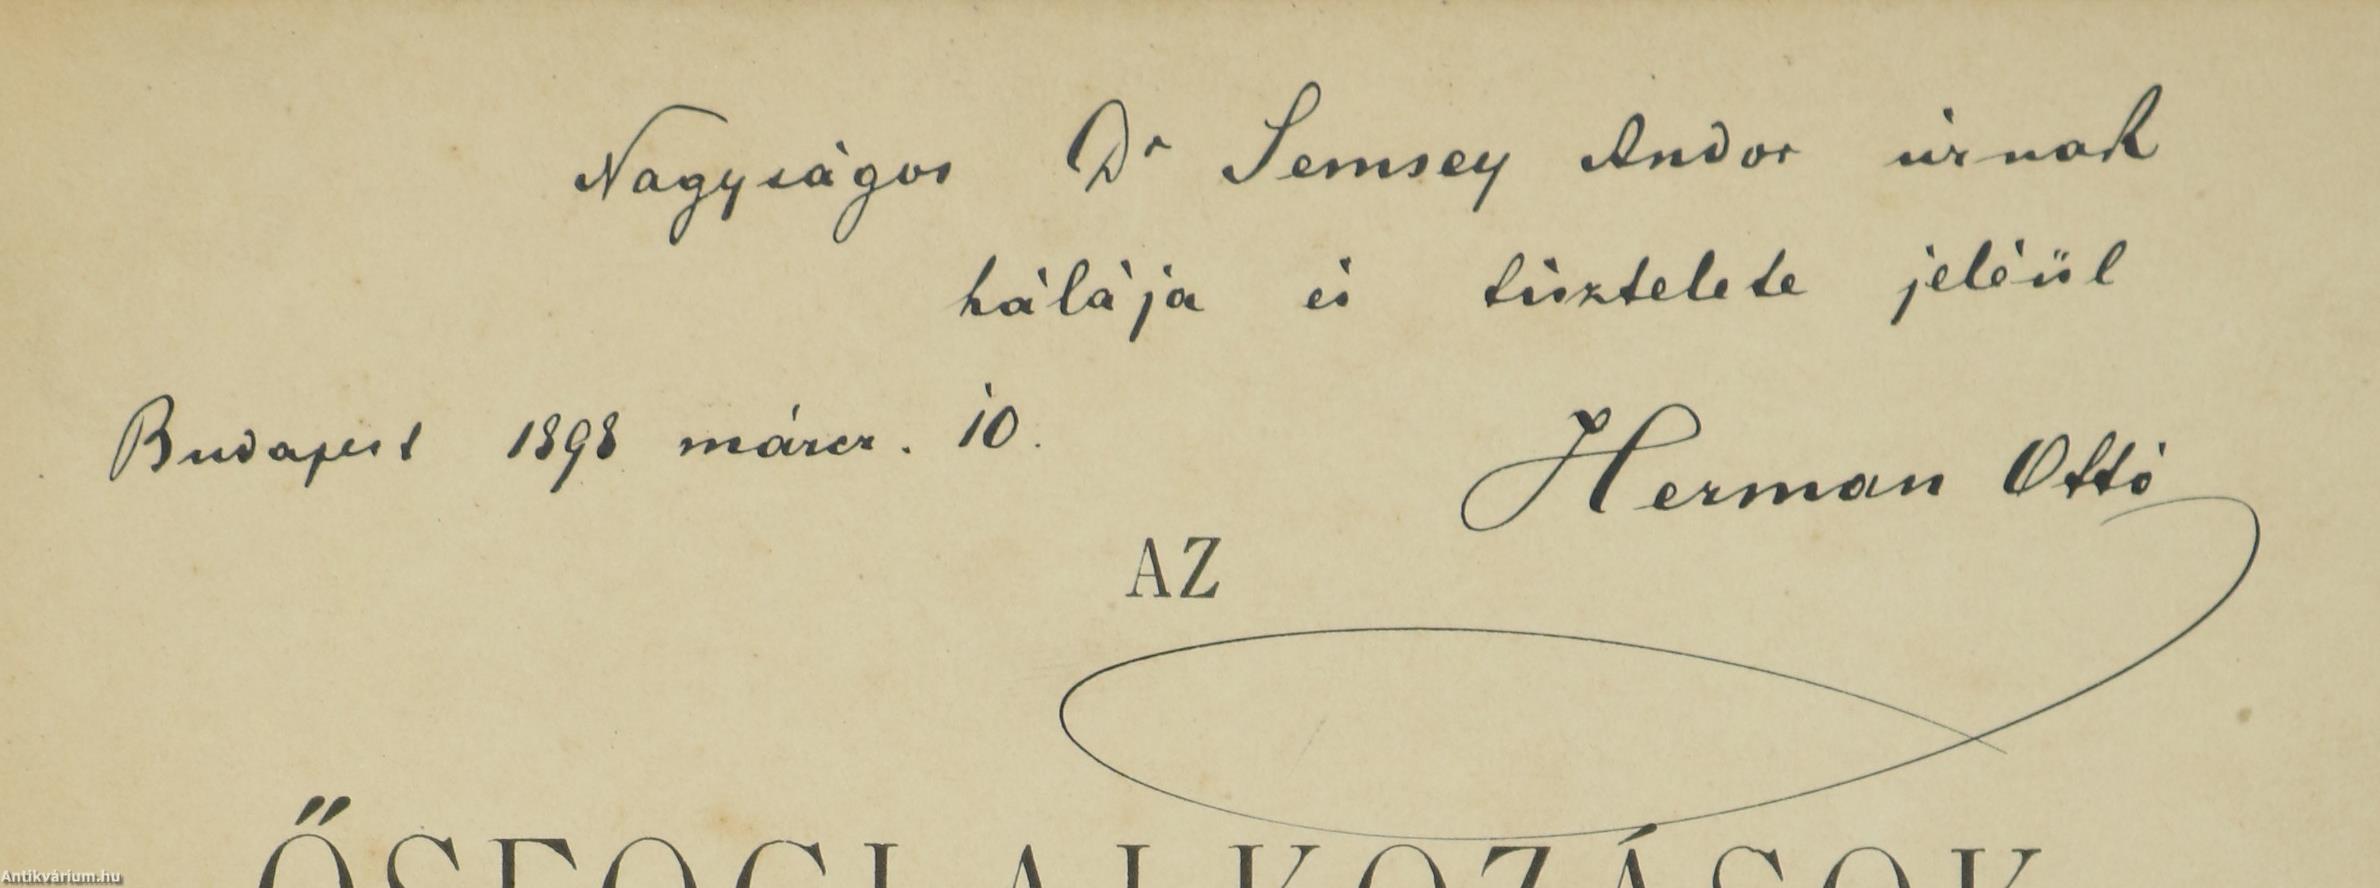 Nagyságos Dr Semsey Andor úrnak
hálája és tisztelete jeléül
Budapest 1898 márcz. 10.
Herman Ottó
AZ
ŐSFOGLALKOZÁSOK
Antikvárium.hu